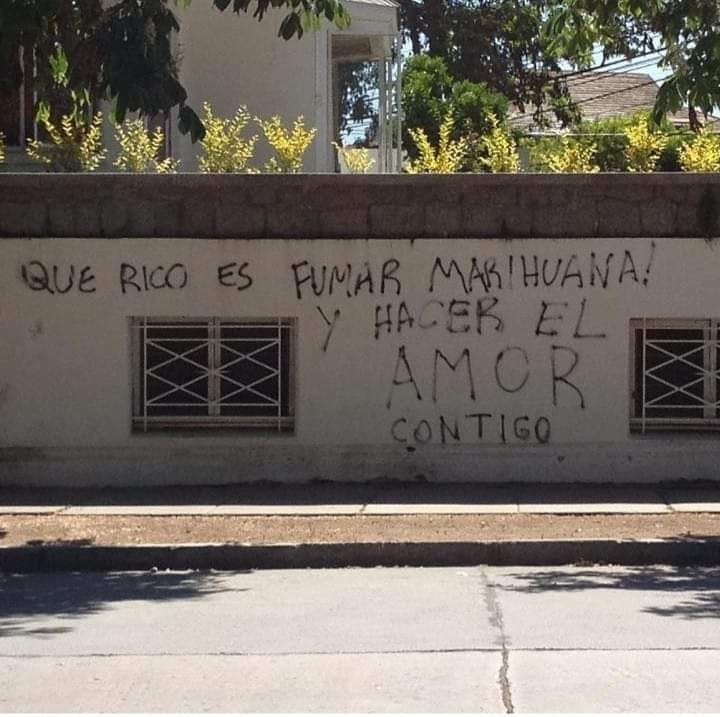 QUE RICO ES FUMAR MARIHUANA!
Y HACER EL
AMOR
CONTIGO